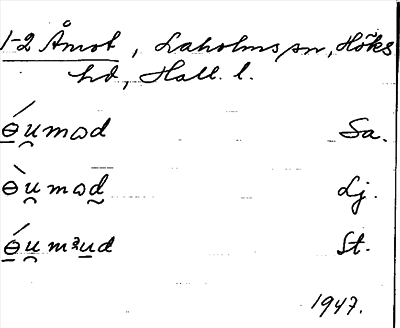 1-2 Åmot, Laholms sn, Höks
hd, Hall. l.
ɵ́u̯mɷd Sa.
ɵ̀u̯mɷd̰ Lj.
ɵ́u̯mᴈud St.
1947.